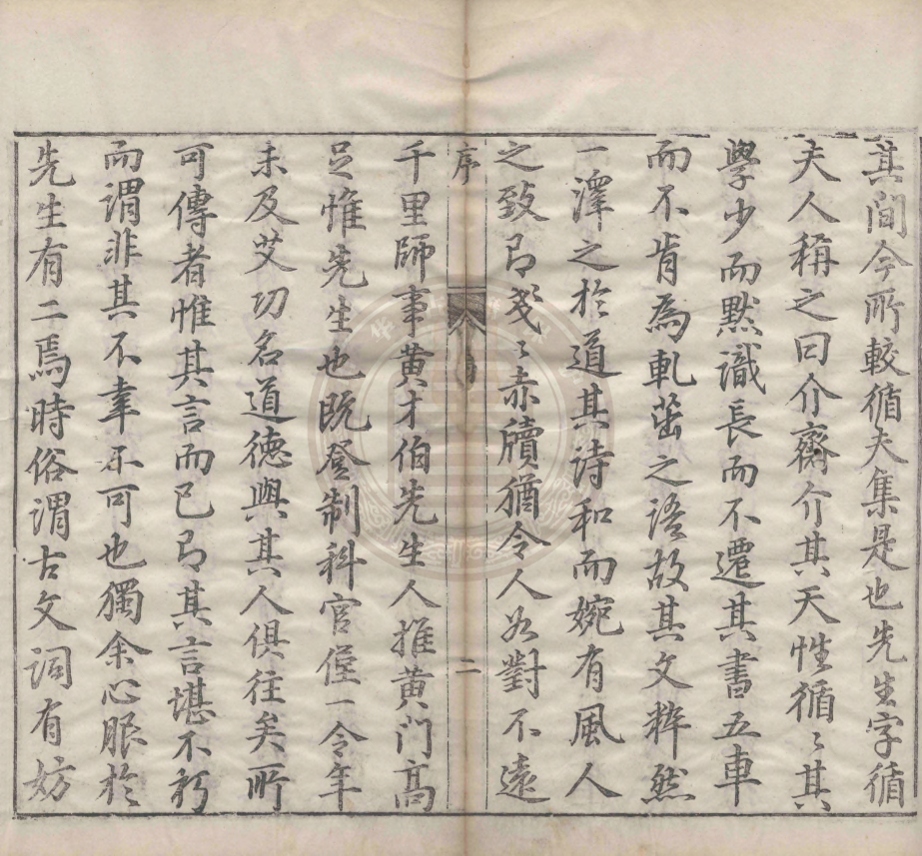 其間今所較循夫集是也先生字循
夫人稱之曰介齋介其天性循〻其
學少而默識長而不遷其書五車
而不肯為軋茁之語故其文粹然
一澤之於道其詩和而婉有風人
之致即戔〻赤牘猶令人如對不遠
序
二
千里師事黃才伯先生人推黃门高
足惟先生也既登制科官僅一令年
未及艾功名道德與其人俱往矣所
可傳者惟其言而已即其言堪不朽
而謂非其不幸不可也獨余心服於
先生有二焉時俗謂古文词有妨